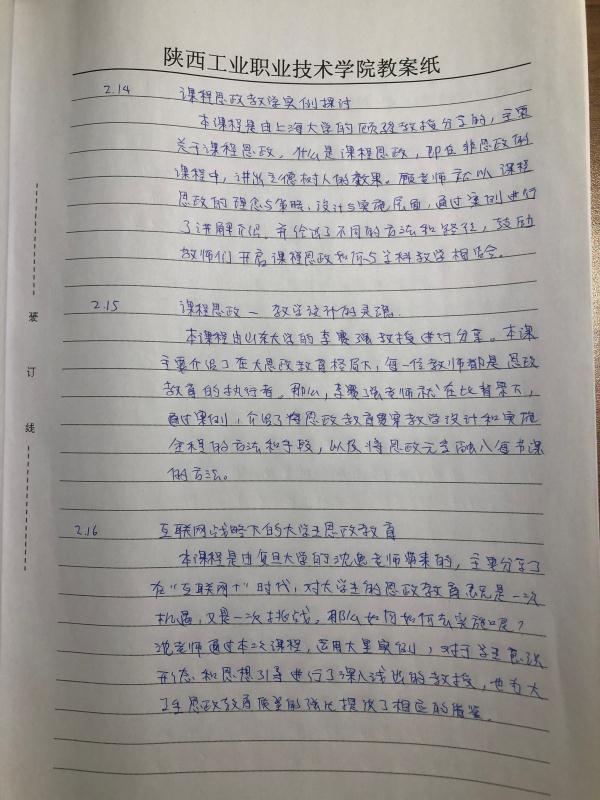 陕西工业职业技术学院教案纸
2.14 课程思政教学实例探讨
本课程是由上海大学的顾骏教授分享的，主要
关于课程思政，什么是课程思政，即在非思政例
课程中，讲出立德树人的效果。顾老师就从课程
思政的理念与策略、设计与实施层面，通过案例进行
了讲解介绍，并给出了不同的方法和路径，鼓励
教师们开启课程思政如何与学科教学相结合。
2.15 课程思政—教学设计的灵魂.
本课程由山东大学的李赛强教授进行分享。本课
主要介绍了在大思政教育格局下，每一位教师都是思政
教育的执行者。那么，李赛强老师就在此背景下，
通过案例，介绍了将思政教育贯穿教学设计和实施
全程的方法和手段，以及将思政元素融入每节课
的方法。
2.16 互联网战略下的大学生思政教育
本课程是由复旦大学的沈逸老师带来的，主要分享了
在“互联网+”时代，对大学生的思政教育既是一次
机遇，又是一次挑战，那么如何如何去实施呢？
沈老师通过本次课程，运用大量实例，对于学生意识
形态和思想引导进行了深入浅出的教授，也为大
学生思政教育质量的强化提供了相应的借鉴.
装
订
线